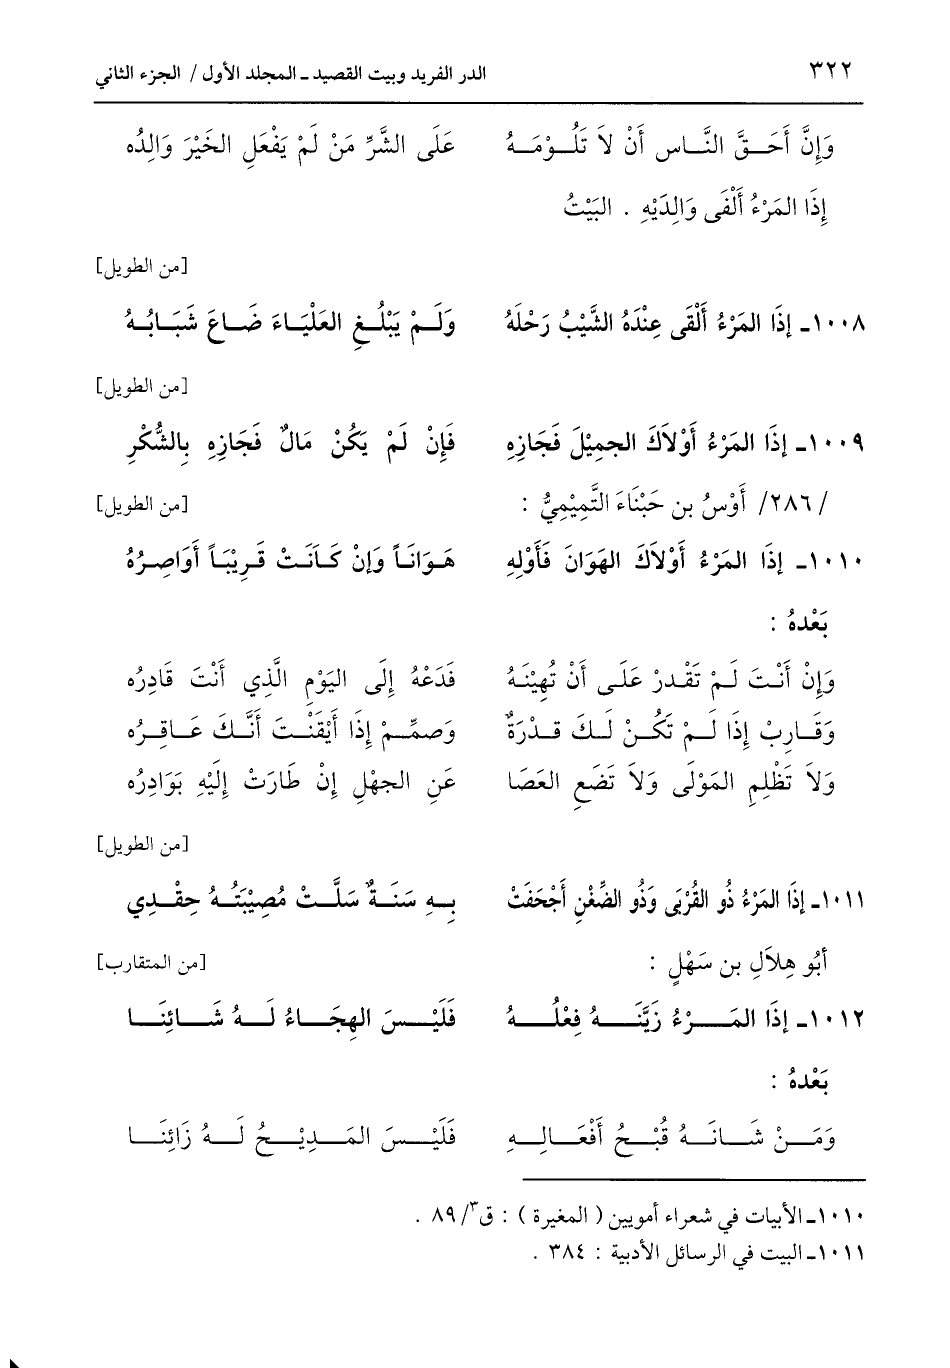 ٣٢٢ الدر الفريد وبيت القصيد ـ المجلد الأول / الجزء الثاني
وَإِنَّ أَحَـقَّ النَّـاسِ أَنْ لاَ تَلُـوْمَـهُ عَلَى الشَّرِّ مَنْ لَمْ يَفْعَلِ الخَيْرَ وَالِدُه
إِذَا المَرْءُ أَلْفَى وَالِدَيْهِ . البَيْتُ
[من الطويل]
١٠٠٨ـ إِذَا المَرْءُ أَلْقَى عِنْدَهُ الشَّيْبُ رَحْلَهُ وَلَـمْ يَبْلُـغِ العَلْيَـاءَ ضَـاعَ شَبَـابُـهُ
[من الطويل]
١٠٠٩ـ إِذَا المَرْءُ أَوْلاَكَ الجمِيْلَ فَجَازِهِ فَإِنْ لَمْ يَكُنْ مَالٌ فَجَازِهِ بِالشُّكْرِ
/ ٢٨٦/ أَوْسُ بن حَبْنَاءَ التَّمِيْمِيُّ : [من الطويل]
١٠١٠ـ إِذَا المَرْءُ أَوْلاَكَ الهَوَانَ فَأَوْلِهِ هَـوَانَـاً وَإِنْ كَـانَـتْ قَـرِيْبَـاً أَوَاصِـرُهُ
بَعْدهُ :
وَإِنْ أَنْـتَ لَـمْ تَقْـدرْ عَلَـى أَنْ تُهِيْنَـهُ فَدَعْهُ إِلَى اليَوْمِ الَّذِي أَنْتَ قَادِرُه
وَقَـارِبْ إِذَا لَـمْ تَكُـنْ لَـكَ قـدْرَةٌ وَصمِّـمْ إِذَا أَيْقَنْـتَ أَنَّـكَ عَـاقِـرُه
وَلاَ تَظْلِمِ المَوْلَى وَلاَ تَضَعِ العَصَا عَنِ الجهْلِ إِنْ طَارَتْ إِلَيْهِ بَوَادِرُه
[من الطويل]
١٠١١ـ إِذَا المَرْءُ ذُو القُرْبَى وَذُو الضِّغْنِ أَجْحَفَتْ بِـهِ سَنَـةٌ سَلَّـتْ مُصِيْبَتُـهُ حِقْـدِي
أبُو هِلاَلِ بن سَهْلٍ : [من المتقارب]
١٠١٢ـ إِذَا المَـــرْءُ زَيَّنَـــهُ فِعْلُـــهُ فَلَيْـسَ الهِجَـاءُ لَـهُ شَـائِنَـا
بَعْدهُ :
وَمَـنْ شَـانَـهُ قُبْـحُ أَفْعَـالِـهِ فَلَيْـسَ المَـدِيْـحُ لَـهُ زَائِنَـا
١٠١٠ـ الأبيات في شعراء أمويين ( المغيرة ) : ق٣/ ٨٩ .
١٠١١ـ البيت في الرسائل الأدبية : ٣٨٤ .